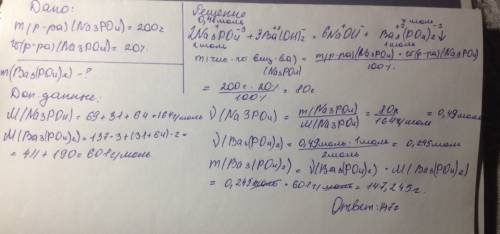 Дано:
m(р-ра)(Na3PO4) = 200г
w(р-ра)(Na3PO4) = 20%
m(Ba3(PO4)2) - ?
Доп. данные:
M(Na3PO4) = 69 + 31 + 64 = 164г/моль
M(Ba3(PO4)2) = 137·3 + (31+64)·2 =
= 411 + 190 = 601г/моль
Решение
0,49моль x моль
2Na3PO4 + 3Ba(OH)2 = 6NaOH + Ba3(PO4)2↓
2моль 1моль
m(чис-го вещ-ва)(Na3PO4) = m(р-ра)(Na3PO4) · w(р-ра)(Na3PO4) / 100% =
= 200г · 20% / 100% = 80г
ν(Na3PO4) = m(Na3PO4) / M(Na3PO4) = 80г / 164г/моль = 0,49моль
ν(Ba3(PO4)2) = 0,49моль · 1моль / 2моль = 0,245моль
m(Ba3(PO4)2) = ν(Ba3(PO4)2) · M(Ba3(PO4)2)
= 0,245моль · 601г/моль = 147,245г
Ответ: 147г